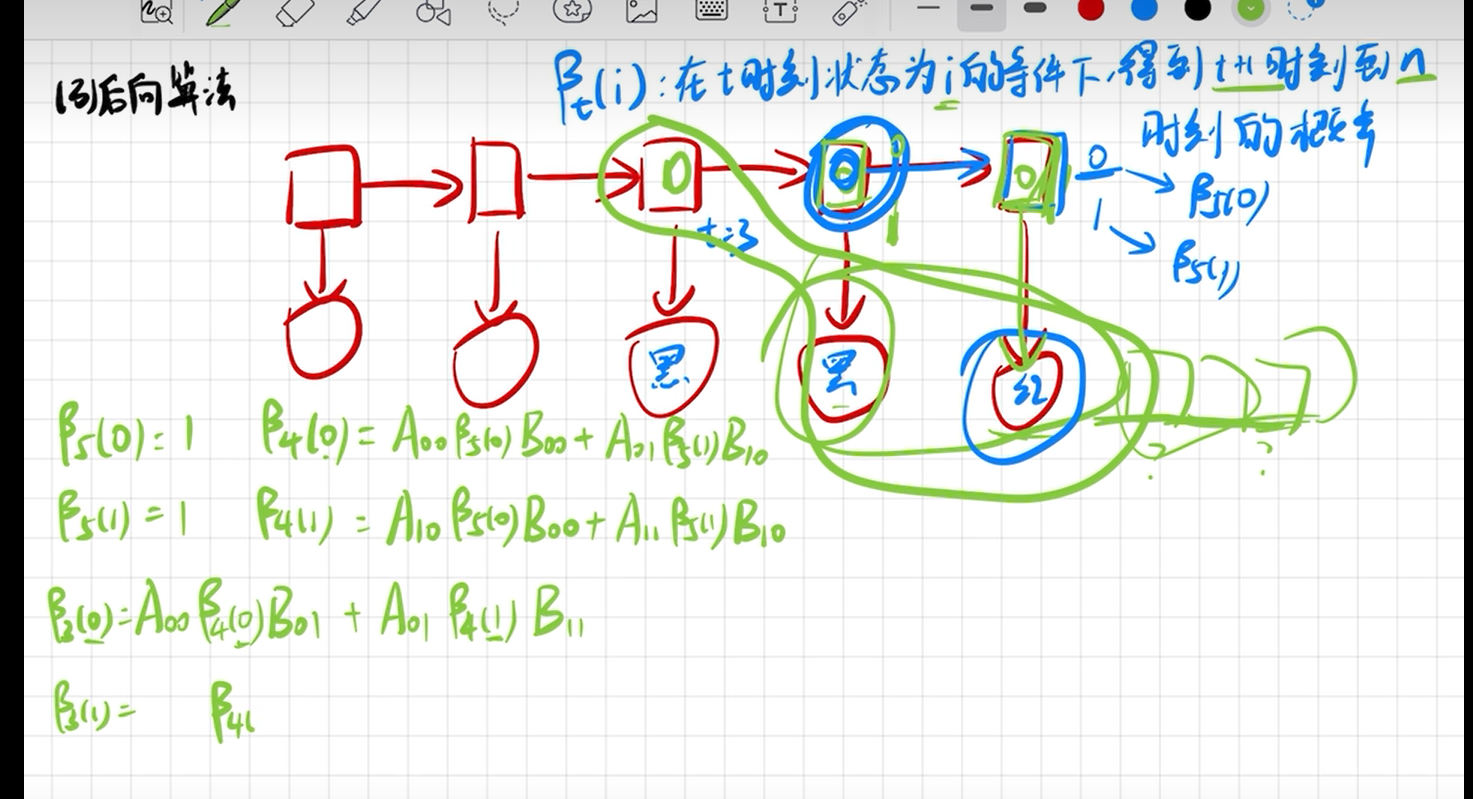 (3)后向算法
βt(i):在t时刻状态为i的条件下,得到t+1时刻到n
时刻的概率
0 0 0 0
β5(0)
1
β5(1)
t=3
黑 黑 红
β5(0)=1 β4(0)= A00 β5(0) B00 + A01 β5(1) B10
β5(1)=1 β4(1) = A10 β5(0) B00 + A11 β5(1) B10
β3(0)= A00 β4(0) B01 + A01 β4(1) B11
β3(1)= β4(
? ?
T